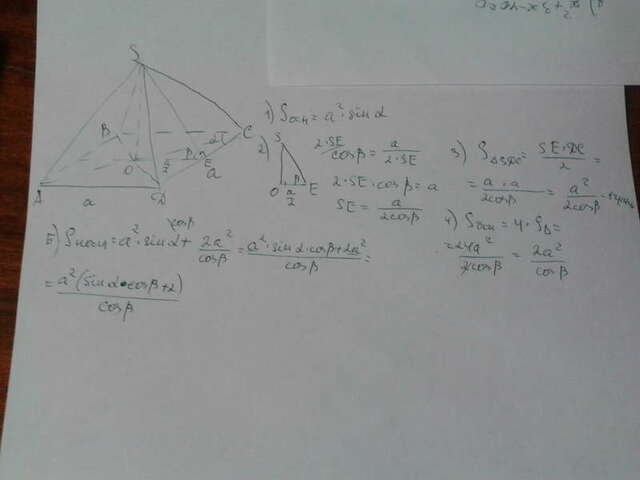 S
B
C
O
E
A
D
a
a
1) Sосн = a² · sin α
2)
S
O
E
a/2
β
2·SE
cos β = a/(2·SE)
2·SE·cos β = a
SE = a/(2cos β)
3)
= (a·a)/(2cos β) = a²/(2cos β)
Sбок = 4·S△ =
= 2a²/cos β
II) Sполн = a²·sin α + 2a²/cos β = (a²·sin α·cos β + 2a²)/cos β =
= a²(sin α·cos β + 2)/cos β